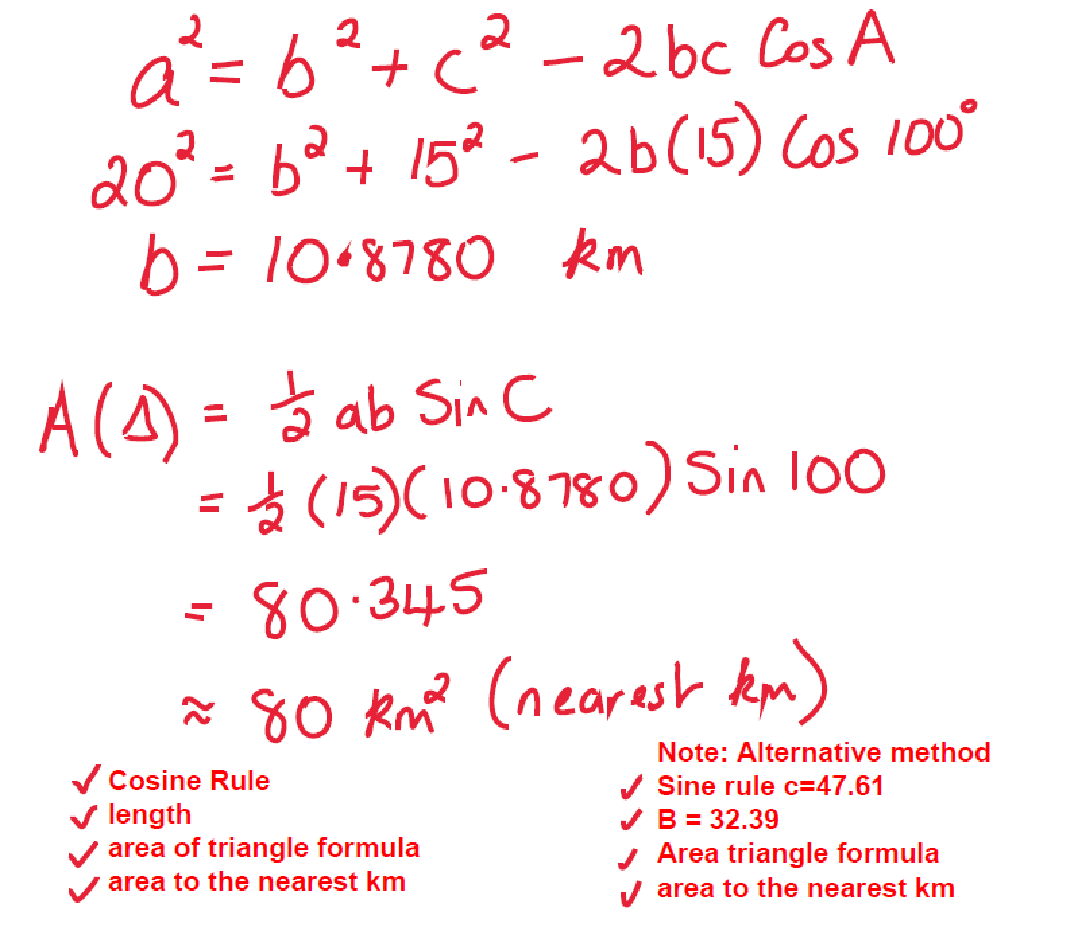 a² = b² + c² - 2bc Cos A
20² = b² + 15² - 2b(15) Cos 100°
b = 10.8780 km
A(Δ) = ½ ab Sin C
= ½ (15)(10.8780) Sin 100
= 80.345
≈ 80 km² (nearest km)
✓ Cosine Rule
✓ length
✓ area of triangle formula
✓ area to the nearest km
Note: Alternative method
✓ Sine rule c=47.61
✓ B = 32.39
✓ Area triangle formula
✓ area to the nearest km